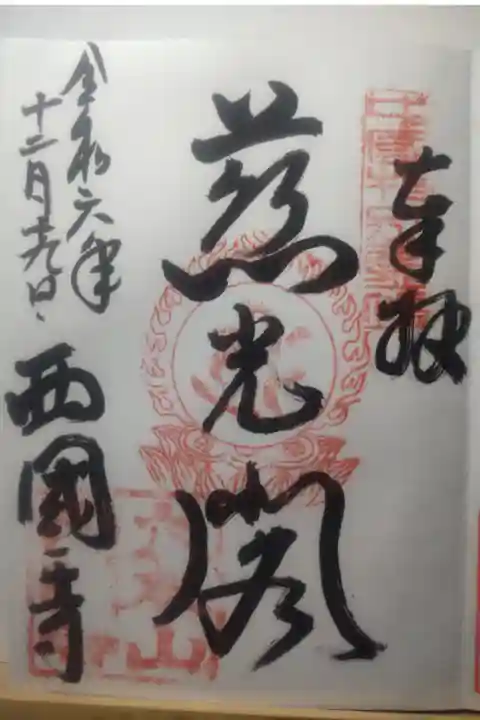 奉拝
慈光閣
令和六年
十二月十九日
西國寺